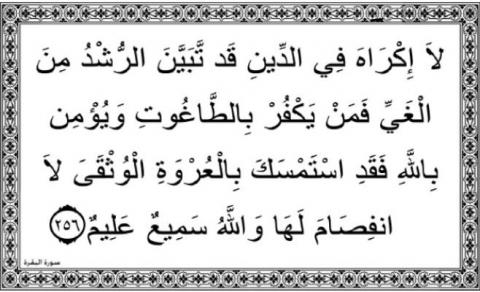 لاَ إِكْرَاهَ فِي الدِّينِ قَد تَّبَيَّنَ الرُّشْدُ مِنَ
الْغَيِّ فَمَنْ يَكْفُرْ بِالطَّاغُوتِ وَيُؤْمِن
بِاللَّهِ فَقَدِ اسْتَمْسَكَ بِالْعُرْوَةِ الْوُثْقَىَ لاَ
انفِصَامَ لَهَا وَاللَّهُ سَمِيعٌ عَلِيمٌ ﴿٢٥٦﴾
سورة البقرة